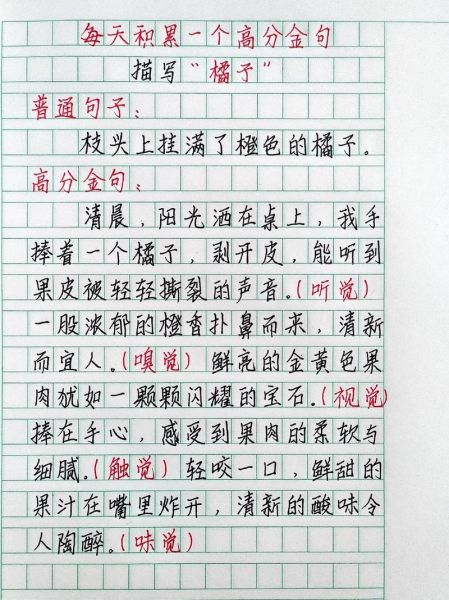 每天积累一个高分金句
描写“橘子”
普通句子：
枝头上挂满了橙色的橘子。
高分金句：
清晨，阳光洒在桌上，我手
捧着一个橘子，剥开皮，能听到
果皮被轻轻撕裂的声音。（听觉）
一股浓郁的橙香扑鼻而来，清新
而宜人。（嗅觉）鲜亮的金黄色果
肉犹如一颗颗闪耀的宝石。（视觉）
捧在手心，感受到果肉的柔软与
细腻。（触觉）轻咬一口，鲜甜的
果汁在嘴里炸开，清新的酸味令
人陶醉。（味觉）